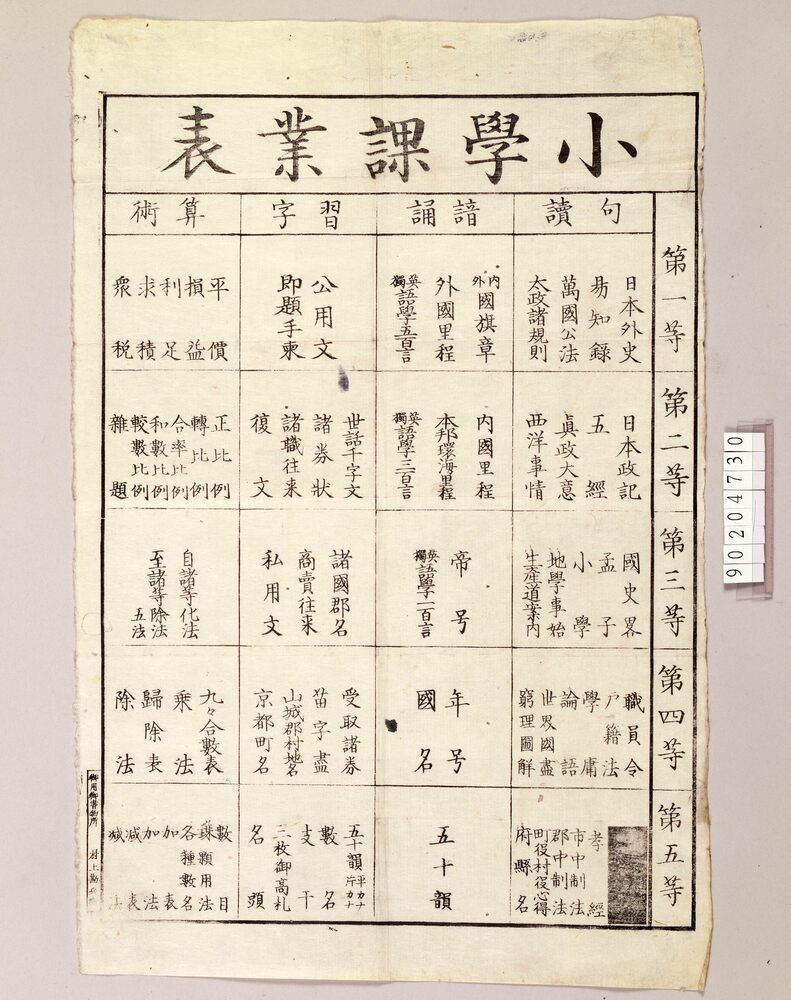 小學課業表
句讀
諳誦
習字
算術
第一等
日本外史
易知錄
萬國公法
太政諸規則
内外國旗章
外國里程
英獨語學五百言
公用文
即題手柬
平價
損益
利足
求積
衆税
第二等
日本政記
五經
眞政大意
西洋事情
内國里程
本邦環海里程
英獨語學三百言
世話千字文
諸券狀
諸職往来
復文
正比例
轉比例
合率比例
和數比例
較數比例
雜題
第三等
國史畧
孟子
小學
地學事始
生産道案内
帝号
英獨語學二百言
諸國郡名
商賣往来
私用文
自諸等化法
至諸等除法
五法
第四等
職員令
戸籍法
學庸
論語
世界國盡
窮理圖解
年号
國名
受取諸券
苗字盡
山城郡村地名
京都町名
九々合數表
乗法
歸除表
除法
第五等
孝經
市中制法
郡中制法
町役村役心得
府縣名
五十韻
五十韻平カナ片カナ
數名
支干
三枚御高札
名頭
數目
珠顆用法
各種數名
加表
加法
減表
減法
御用御書物所
村上勘兵衛
90204730